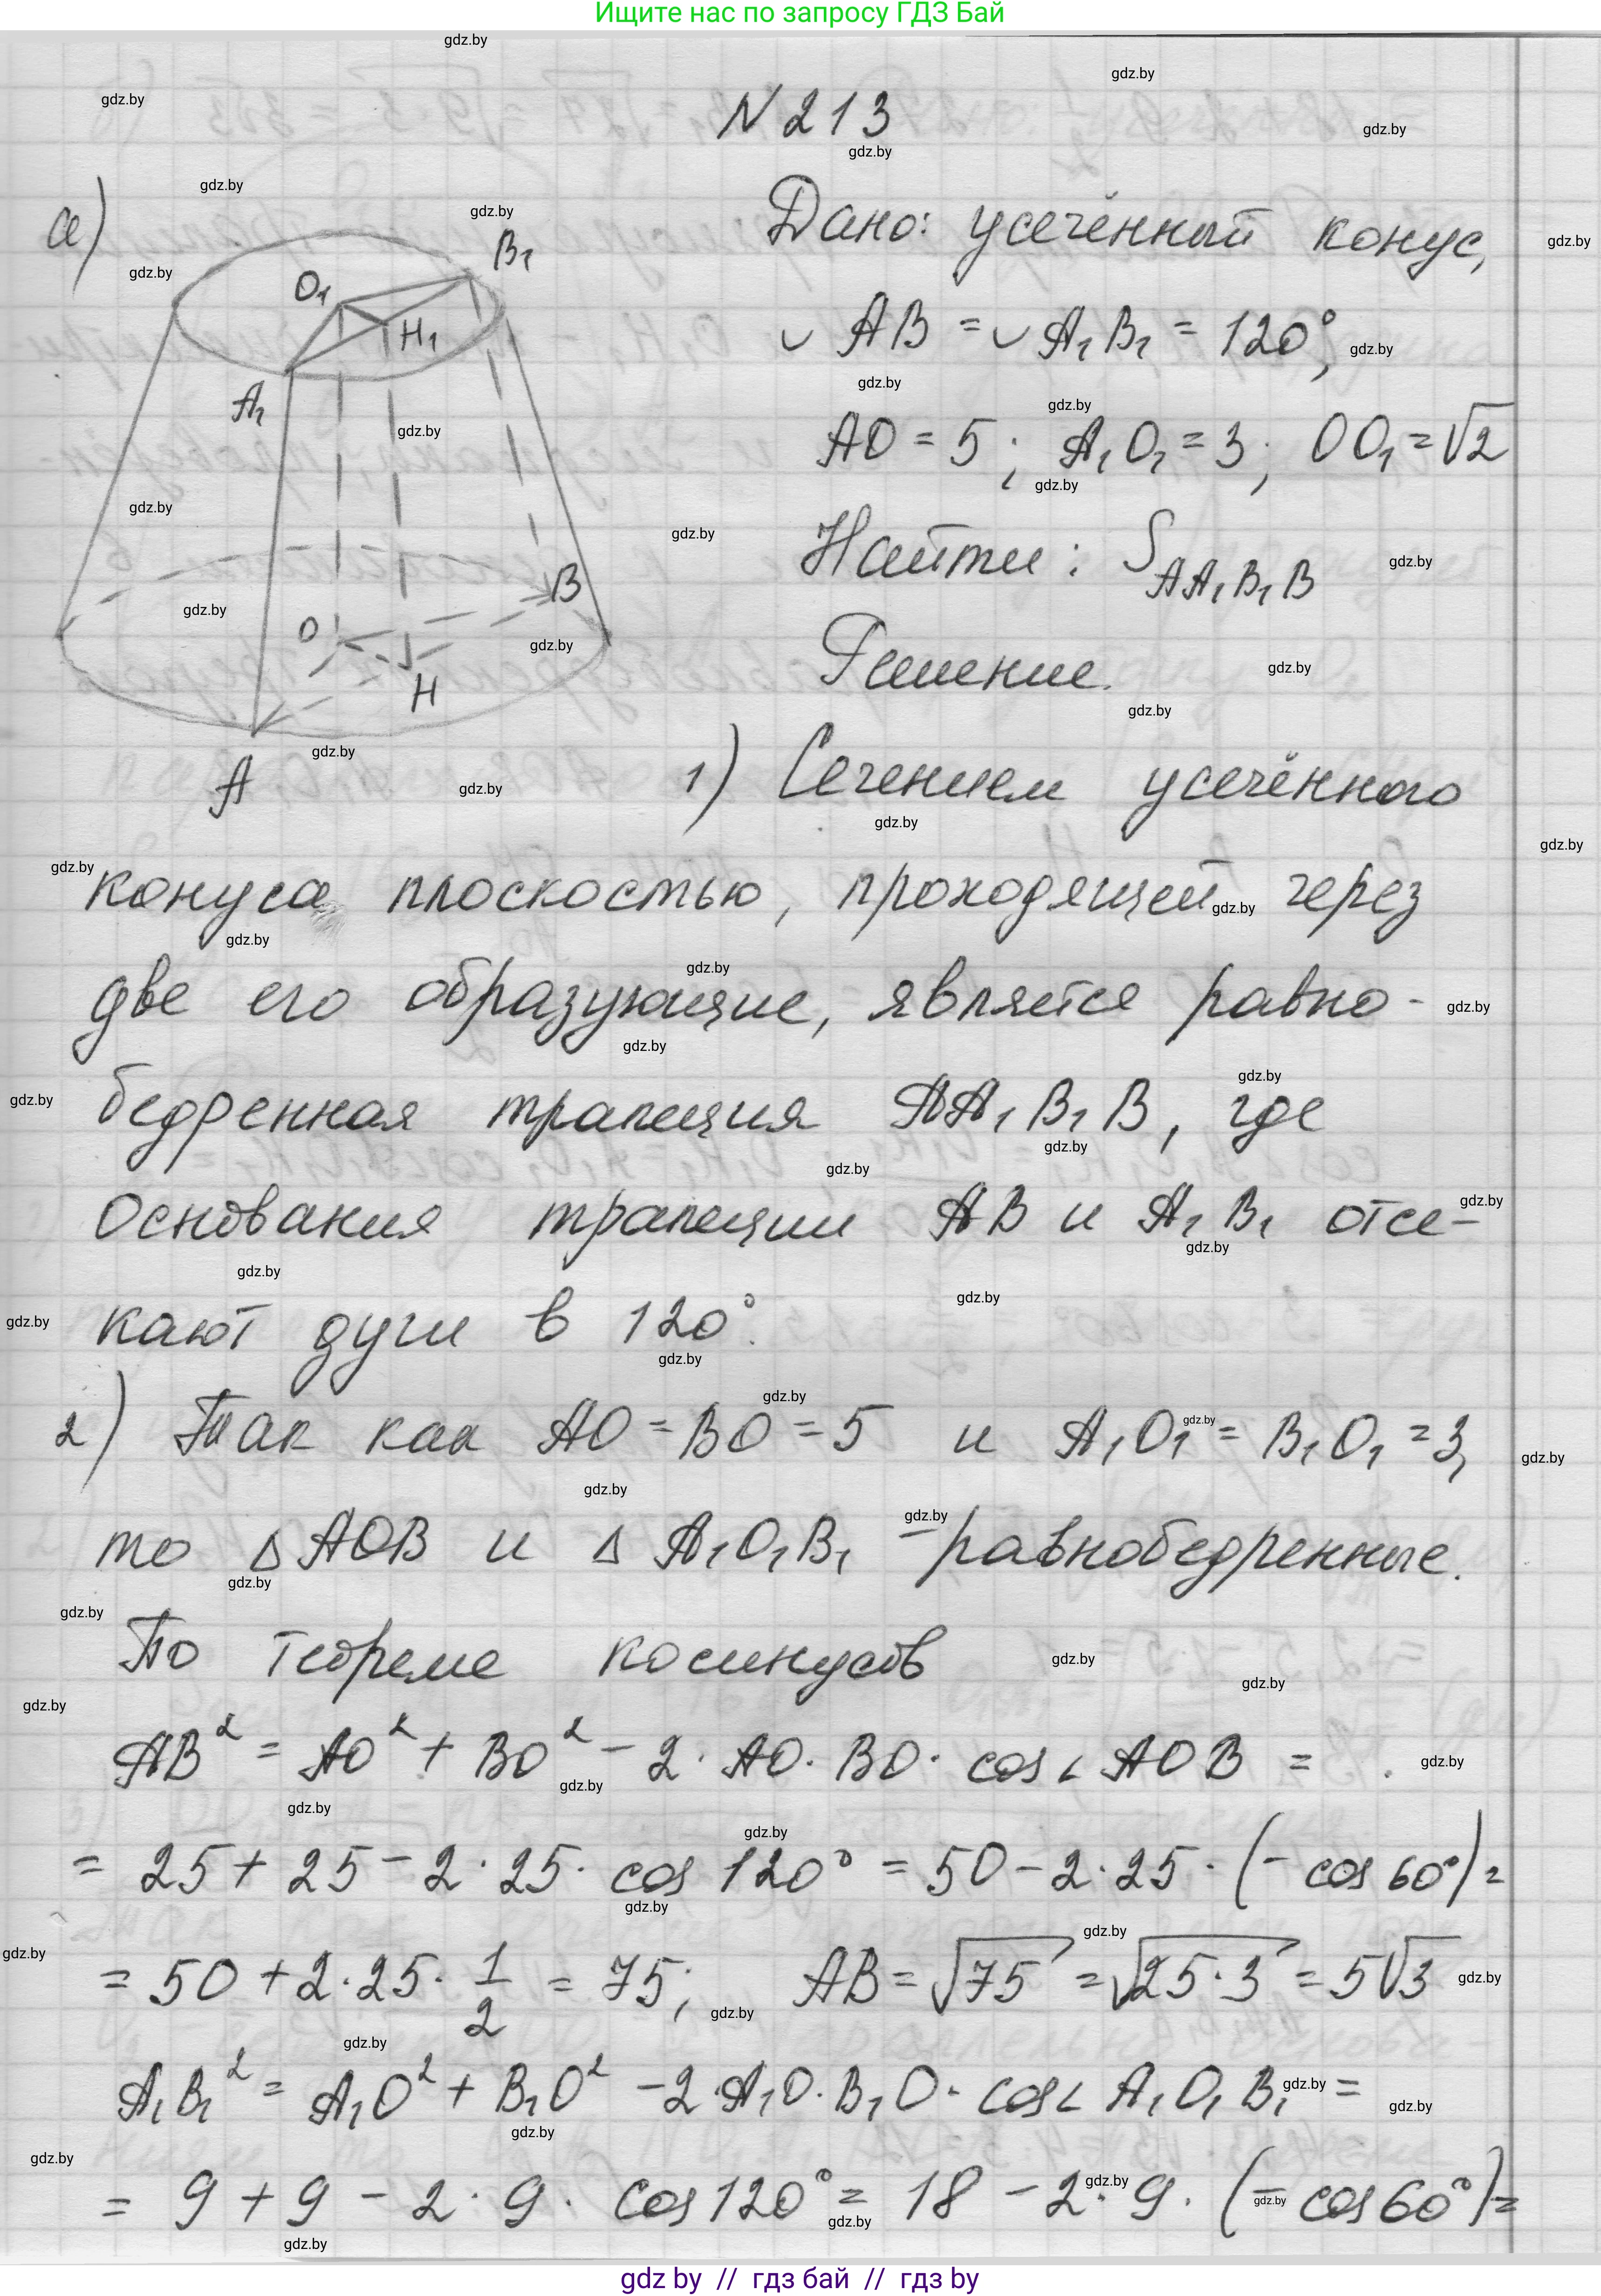 Ищите нас по запросу ГДЗ Бай
N 213
а)
Дано: усечённый конус,
◡ AB = ◡ A₁B₁ = 120°,
AO = 5; A₁O₁ = 3; OO₁ = √2
Найти: S_{AA₁B₁B}
Решение.
O₁
B₁
H₁
A₁
B
O
H
A
1) Сечением усечённого
конуса плоскостью, проходящей через
две его образующие, является равно-
бедренная трапеция AA₁B₁B, где
основания трапеции AB и A₁B₁ отсе-
кают дуги в 120°.
2) Так как AO = BO = 5 и A₁O₁ = B₁O₁ = 3,
то △AOB и △A₁O₁B₁ – равнобедренные.
По теореме косинусов
AB² = AO² + BO² − 2·AO·BO·cos∠AOB =
= 25 + 25 − 2·25·cos 120° = 50 − 2·25·(−cos 60°) =
= 50 + 2·25·1/2 = 75; AB = √75 = √25·3 = 5√3
A₁B₁² = A₁O² + B₁O² − 2·A₁O·B₁O·cos∠A₁O₁B₁ =
= 9 + 9 − 2·9·cos 120° = 18 − 2·9·(−cos 60°) =
gdz by // гдз бай // гдз by